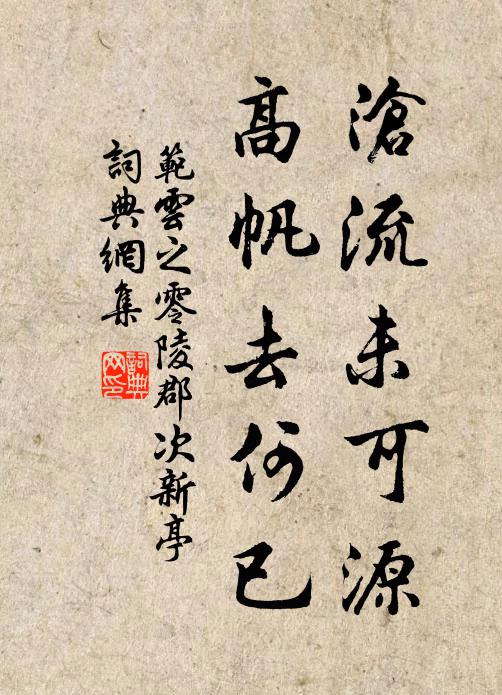 滄流未可源
高帆去何已
範雲之零陵郡次新亭
詞典網集
詞典网印